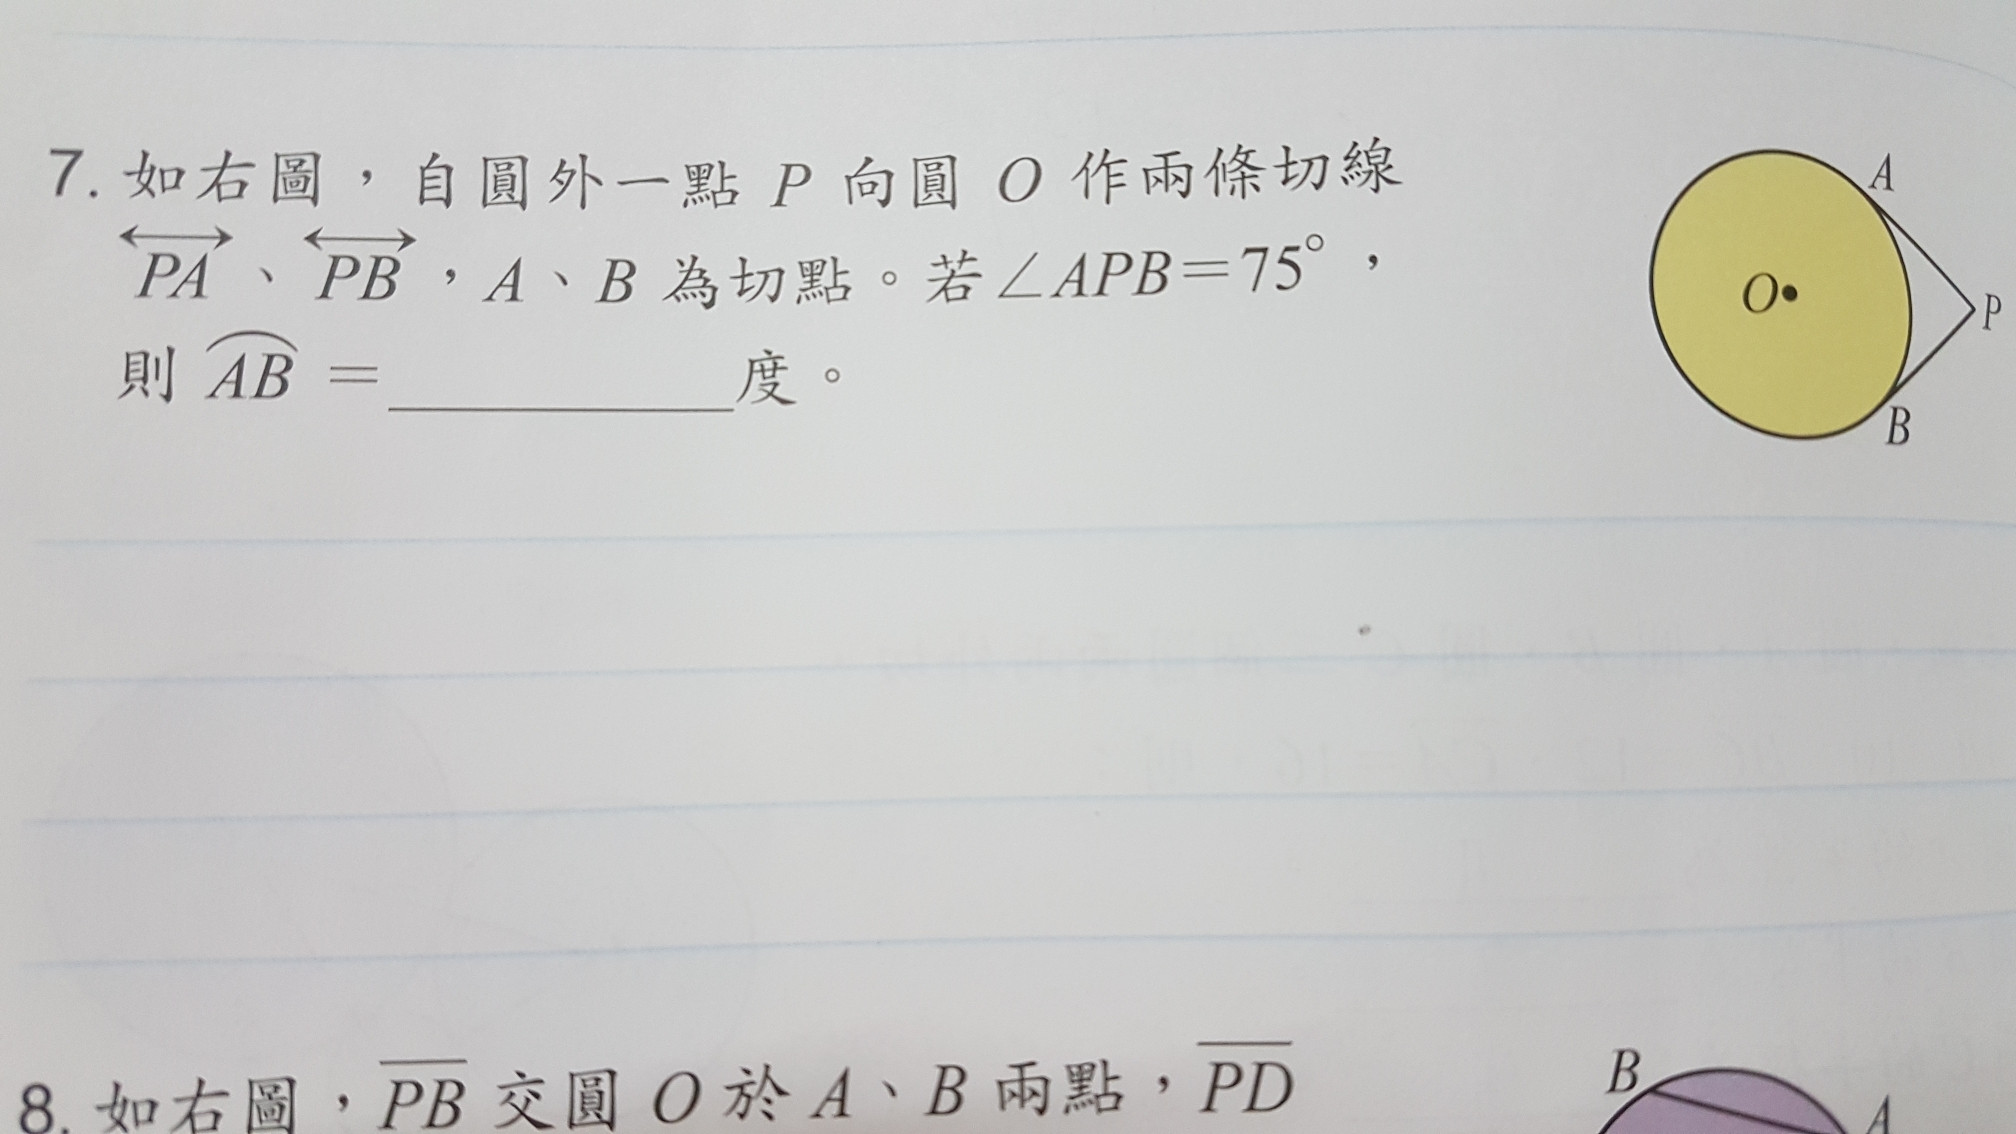 7. 如右圖，自圓外一點 P 向圓 O 作兩條切線
PA、PB，A、B 為切點。若∠APB=75°，
則 AB = ________ 度。
A
O
P
B
8. 如右圖，PB 交圓 O 於 A、B 兩點，PD
B
A